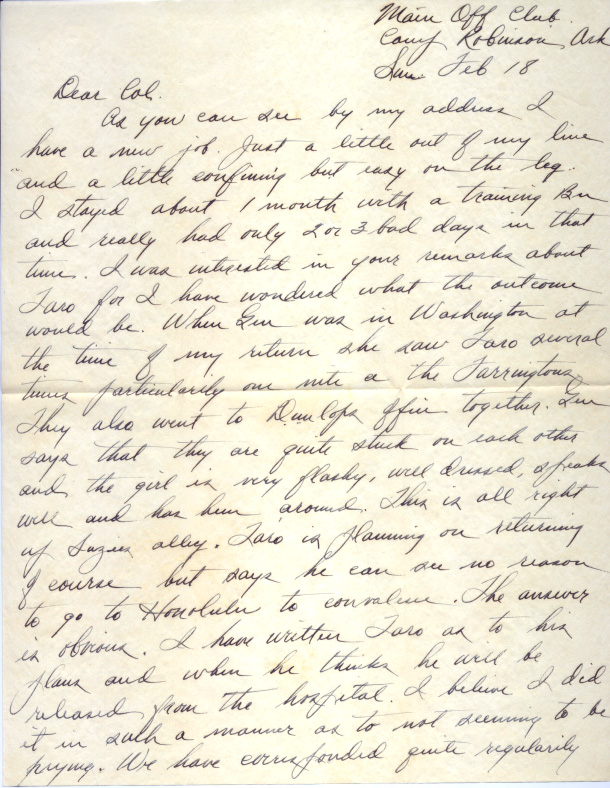 Main Off Club.
Camp Robinson Ark
Sun Feb 18
Dear Col.
As you can see by my address I
have a new job. Just a little out of my line
and a little confining but easy on the leg.
I stayed about 1 month with a training Bn
and really had only 2 or 3 bad days in that
time. I was interested in your remarks about
Taro for I have wondered what the outcome
would be. When Gen was in Washington at
the time of my return she saw Taro several
times particularly one nite a the Farringtons.
They also went to Dunlops together. Gen
says that they are quite stuck on each other
and the girl is very flashy, well dressed, speaks
well and has been around. This is all right
up Suzies alley. Taro is planning on returning
of course but says he can see no reason
to go to Honolulu to convalese. The answer
is obvious. I have written Taro as to his
plans and when he thinks he will be
released from the hospital. I believe I did
it in such a manner as to not seeming to be
prying. We have corresponded quite regularily